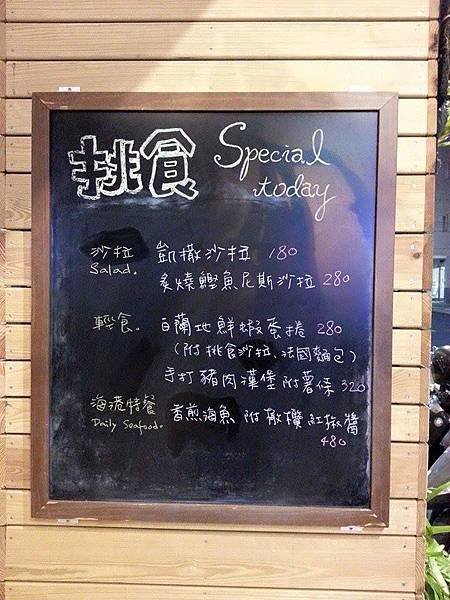 挑食 Special
today
沙拉 凱撒沙拉 180
Salad.
炙燒鰹魚尼斯沙拉 280
輕食. 白蘭地鮮蝦蛋捲 280
(附挑食沙拉、法國麵包)
手打豬肉漢堡附薯條 320
海港特餐 香煎海魚附橄欖紅椒醬
Daily Seafood.
480